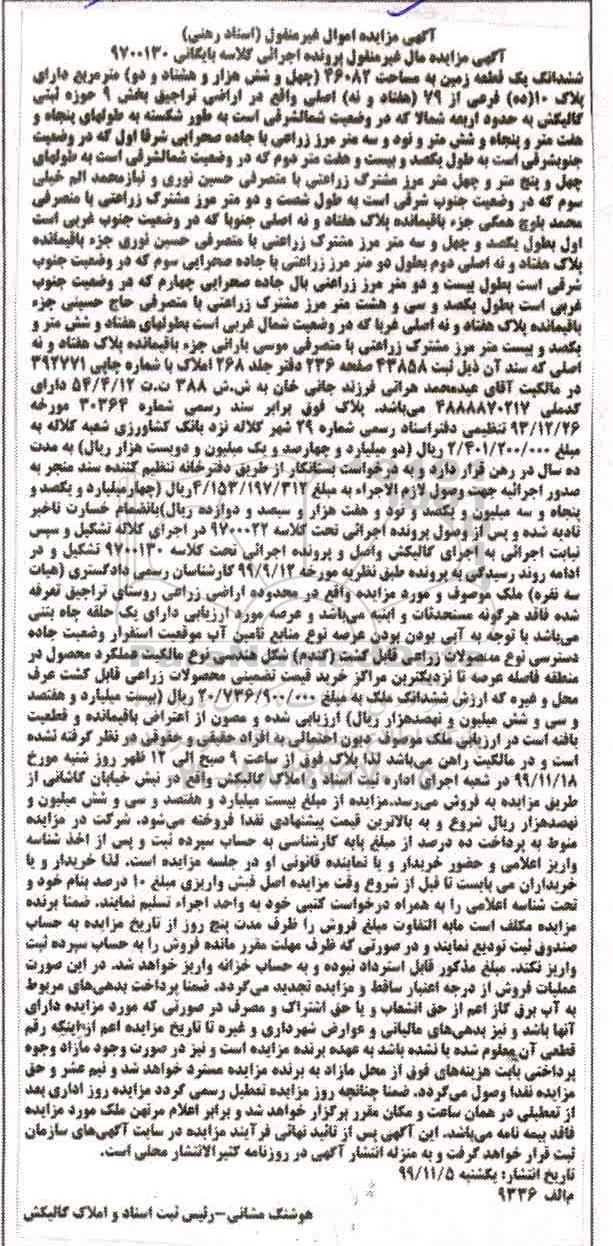 آگهی مزایده اموال غیرمنقول (اسناد رهنی)
آگهی مزایده مال غیرمنقول پرونده اجرائی کلاسه بایگانی ۹۷۰۰۱۳۰
ششدانگ یک قطعه زمین به مساحت ۴۶۰۸۲ (چهل و شش هزار و هشتاد و دو) مترمربع دارای
پلاک ۱۰(ده) فرعی از ۷۹ (هفتاد و نه) اصلی واقع در اراضی تراجیق بخش ۹ حوزه ثبتی
گالیکش به حدود اربعه شمالا که در وضعیت شمالشرقی است به طور شکسته به طولهای پنجاه و
هفت متر و پنجاه و شش متر و نود و سه متر مرز زراعی با جاده صحرایی شرقا اول که در وضعیت
جنوبشرقی است به طول یکصد و بیست و هفت متر دوم که در وضعیت شمالشرقی است به طولهای
چهل و پنج متر و چهل متر مرز مشترک زراعتی با متصرفی حسین نوری و نیازمحمد الم خیلی
سوم که در وضعیت جنوب شرقی است به طول شصت و دو متر مرز مشترک زراعتی با متصرفی
محمد بلوچ همگی جزء باقیمانده پلاک هفتاد و نه اصلی جنوبا که در وضعیت جنوب غربی است
اول بطول یکصد و چهل و سه متر مرز مشترک زراعتی با متصرفی حسین نوری جزء باقیمانده
پلاک هفتاد و نه اصلی دوم بطول دو متر مرز زراعتی با جاده صحرایی سوم که در وضعیت جنوب
شرقی است بطول بیست و دو متر مرز زراعتی بال جاده صحرایی چهارم که در وضعیت جنوب
غربی است بطول یکصد و سی و هشت متر مرز مشترک زراعتی با متصرفی حاج حسینی جزء
باقیمانده پلاک هفتاد و نه اصلی غربا که در وضعیت شمال غربی است بطولهای هفتاد و شش متر و
یکصد و بیست متر مرز مشترک زراعتی با متصرفی موسی بارانی جزء باقیمانده پلاک هفتاد و نه
اصلی که سند آن ذیل ثبت ۴۳۸۵۸ صفحه ۲۳۶ دفتر جلد ۲۶۸ املاک با شماره چاپی ۳۹۲۷۷۱
در مالکیت آقای عیدمحمد هراتی فرزند جانی خان به ش.ش ۳۸۸ ت.ت ۵۴/۴/۱۲ دارای
کدملی ۴۸۸۸۸۷۰۲۱۷ می‌باشد. پلاک فوق برابر سند رسمی شماره ۳۰۳۶۴ مورخه
۹۳/۱۲/۲۶ تنظیمی دفتراسناد رسمی شماره ۲۹ شهر کلاله نزد بانک کشاورزی شعبه کلاله به
مبلغ ۲/۴۰۱/۲۰۰/۰۰۰ ریال (دو میلیارد و چهارصد و یک میلیون و دویست هزار ریال) به مدت
ده سال در رهن قرار دارد و به درخواست بستانکار از طریق دفترخانه تنظیم کننده سند منجر به
صدور اجرائیه جهت وصول لازم الاجراء به مبلغ ۴/۱۵۳/۱۹۷/۳۱۲ریال (چهارمیلیارد و یکصد و
پنجاه و سه میلیون و یکصد و نود و هفت هزار و سیصد و دوازده ریال)بانضمام خسارت تاخیر
تادیه شده و پس از وصول پرونده اجرائی تحت کلاسه ۹۷۰۰۰۲۲ در اجرای کلاله تشکیل و سپس
نیابت اجرائی به اجرای گالیکش واصل و پرونده اجرائی تحت کلاسه ۹۷۰۰۱۳۰ تشکیل و در
ادامه روند رسیدگی به پرونده طبق نظریه مورخه ۹۹/۹/۱۲ کارشناسان رسمی دادگستری (هیات
سه نفره) ملک موصوف و مورد مزایده واقع در محدوده اراضی زراعی روستای تراجیق تعرفه
شده فاقد هرگونه مستحدثات و ابنیه می‌باشد و عرصه مورد ارزیابی دارای یک حلقه چاه بتنی
می‌باشد با توجه به آبی بودن بودن عرصه نوع منابع تامین آب موقعیت استقرار وضعیت جاده
دسترسی نوع محصولات زراعی قابل کشت (گندم) شکل هندسی نوع مالکیت عملکرد محصول در
منطقه فاصله عرصه تا نزدیکترین مراکز خرید قیمت تضمینی محصولات زراعی قابل کشت عرف
محل و غیره که ارزش ششدانگ ملک به مبلغ ۲۰/۷۳۶/۹۰۰/۰۰۰ ریال (بیست میلیارد و هفتصد
و سی و شش میلیون و نهصدهزار ریال) ارزیابی شده و مصون از اعتراض باقیمانده و قطعیت
یافته است در ارزیابی ملک موصوف دیون احتمالی به افراد حقیقی و حقوقی در نظر گرفته نشده
است و در مالکیت راهن می‌باشد لذا پلاک فوق از ساعت ۹ صبح الی ۱۲ ظهر روز شنبه مورخ
۹۹/۱۱/۱۸ در شعبه اجرای اداره ثبت اسناد و املاک گالیکش واقع در نبش خیابان کاشانی از
طریق مزایده به فروش می‌رسد.مزایده از مبلغ بیست میلیارد و هفتصد و سی و شش میلیون و
نهصدهزار ریال شروع و به بالاترین قیمت پیشنهادی نقدا فروخته می‌شود. شرکت در مزایده
منوط به پرداخت ده درصد از مبلغ پایه کارشناسی به حساب سپرده ثبت و پس از اخذ شناسه
واریز اعلامی و حضور خریدار و یا نماینده قانونی او در جلسه مزایده است. لذا خریدار و یا
خریداران می بایست تا قبل از شروع وقت مزایده اصل فیش واریزی مبلغ ۱۰ درصد بنام خود و
تحت شناسه اعلامی را به همراه درخواست کتبی خود به واحد اجراء تسلیم نمایند. ضمنا برنده
مزایده مکلف است مابه التفاوت مبلغ فروش را ظرف مدت پنج روز از تاریخ مزایده به حساب
صندوق ثبت تودیع نمایند و در صورتی که ظرف مهلت مقرر مانده فروش را به حساب سپرده ثبت
واریز نکند. مبلغ مذکور قابل استرداد نبوده و به حساب خزانه واریز خواهد شد. در این صورت
عملیات فروش از درجه اعتبار ساقط و مزایده تجدید می‌گردد. ضمنا پرداخت بدهی‌های مربوط
به آب برق گاز اعم از حق انشعاب و یا حق اشتراک و مصرف در صورتی که مورد مزایده دارای
آنها باشد و نیز بدهی‌های مالیاتی و عوارض شهرداری و غیره تا تاریخ مزایده اعم از اینکه رقم
قطعی آن معلوم شده یا نشده باشد به عهده برنده مزایده است و نیز در صورت وجود مازاد وجوه
پرداختی بابت هزینه‌های فوق از محل مازاد به برنده مزایده مسترد خواهد شد و نیم عشر و حق
مزایده نقدا وصول می‌گردد. ضمنا چنانچه روز مزایده تعطیل رسمی گردد مزایده روز اداری بعد
از تعطیلی در همان ساعت و مکان مقرر برگزار خواهد شد و برابر اعلام مرتهن ملک مورد مزایده
فاقد بیمه نامه می‌باشد. این آگهی پس از تائید نهائی فرآیند مزایده در سایت آگهی‌های سازمان
ثبت قرار خواهد گرفت و به منزله انتشار آگهی در روزنامه کثیرالانتشار محلی است.
تاریخ انتشار: یکشنبه ۹۹/۱۱/۵
م‌الف ۹۳۳۶
هوشنگ مشانی-رئیس ثبت اسناد و املاک گالیکش